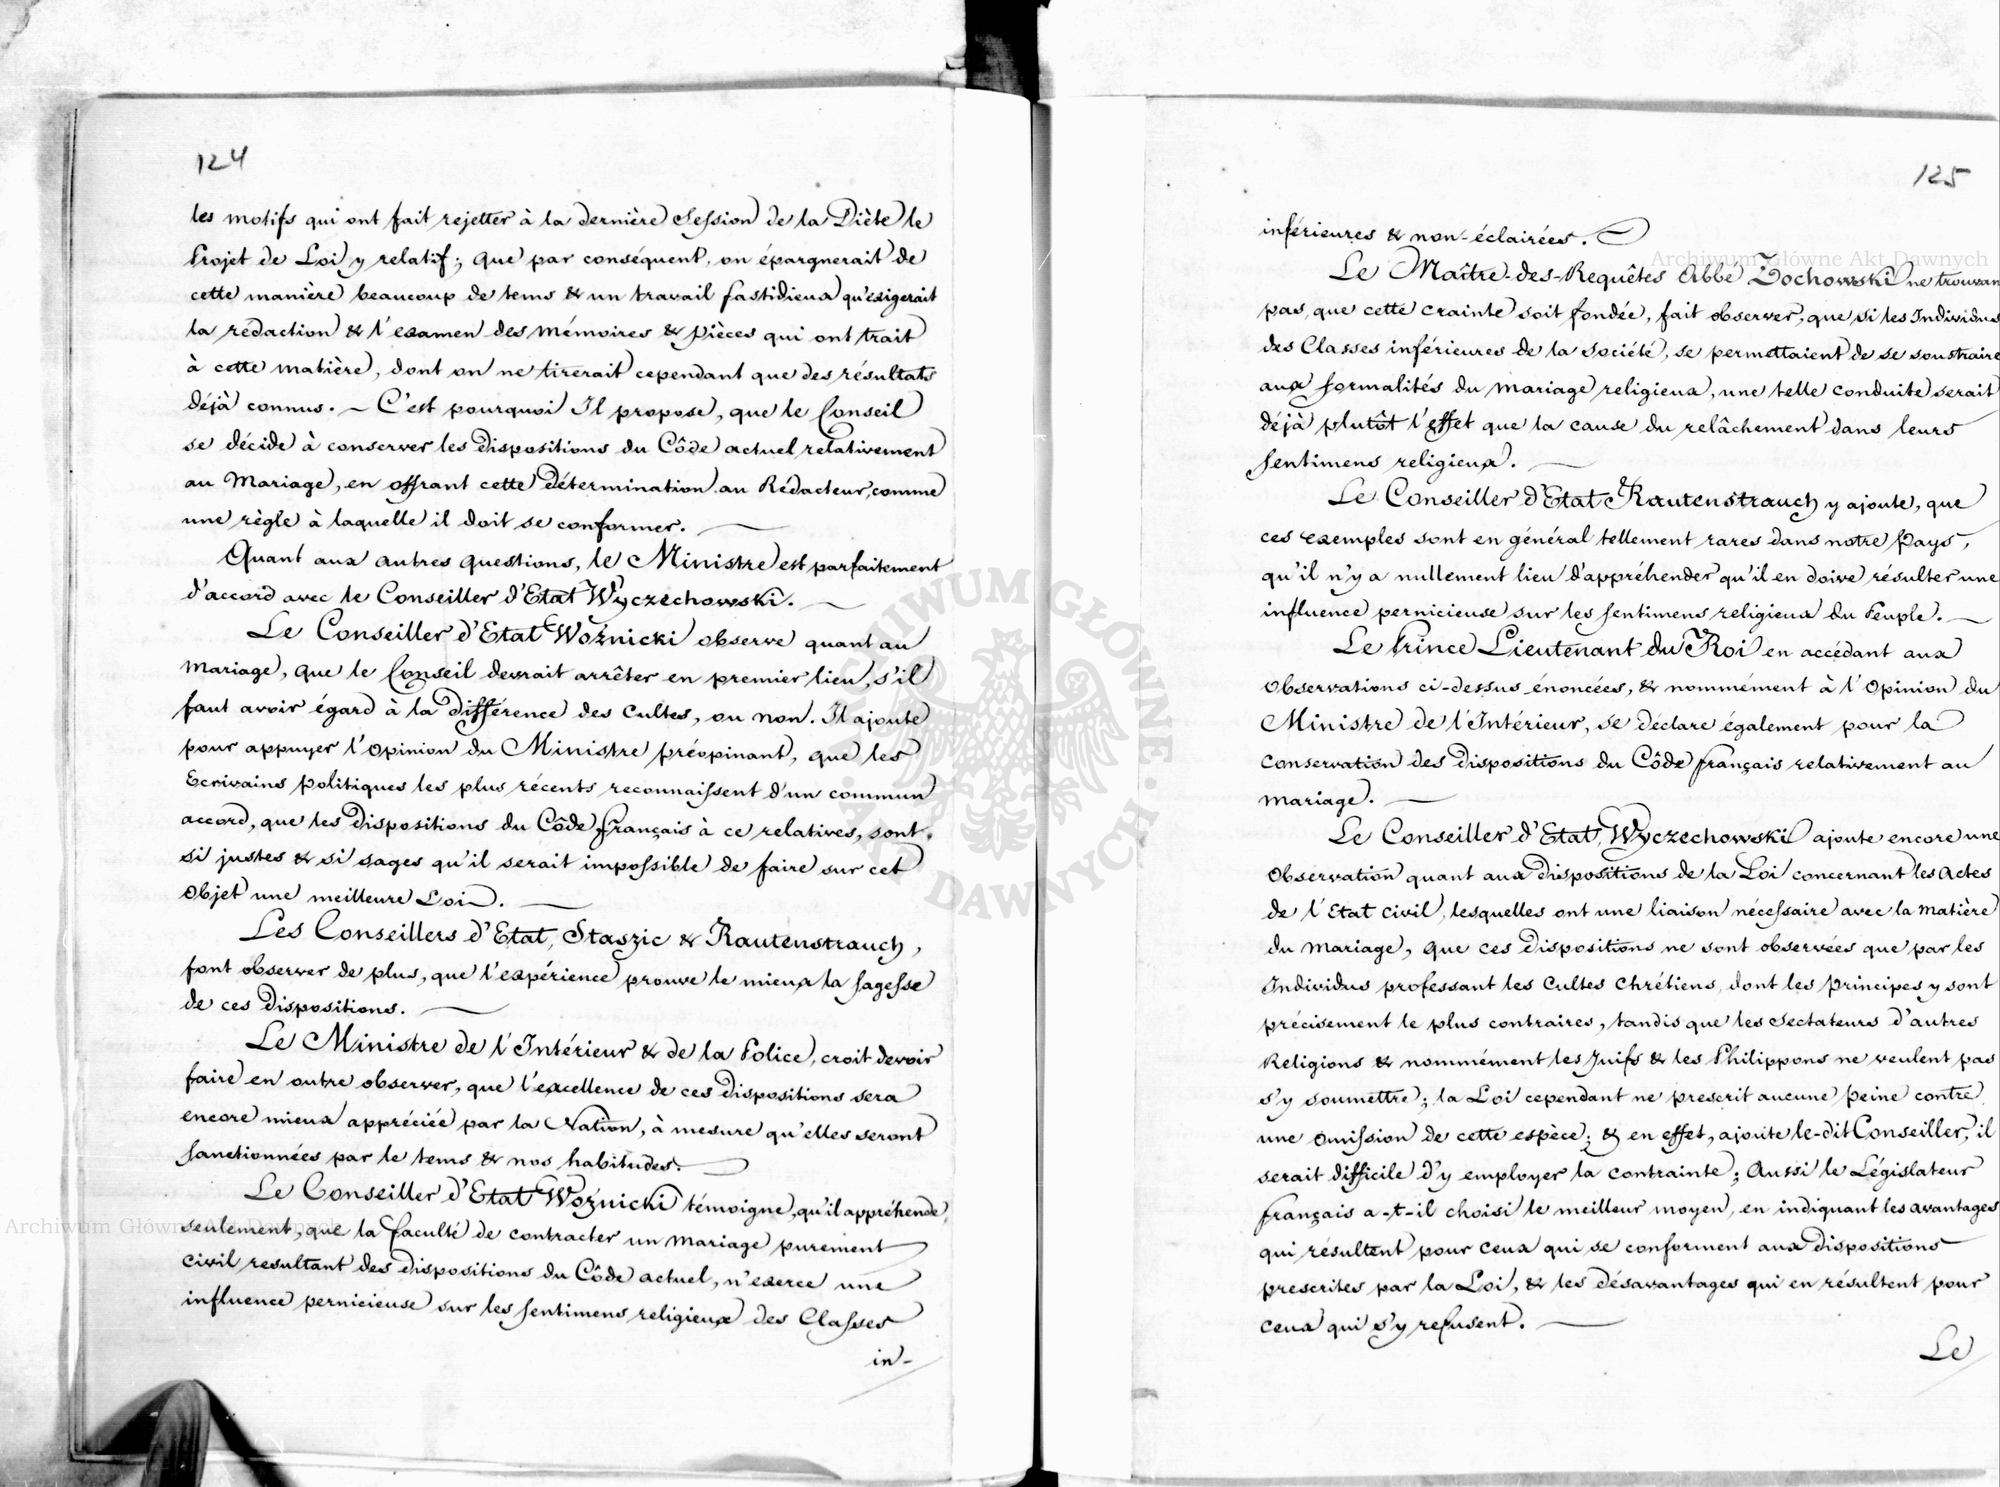 124
les motifs qui ont fait rejetter à la dernière Session de la Diète le
Projet de Loi y relatif; que par conséquent, on épargnerait de
cette manière beaucoup de tems & un travail fastidieux qu'exigerait
la rédaction & l'examen des Mémoires & Pièces qui ont trait
à cette matière, dont on ne tirerait cependant que des résultats
déjà connus. — C'est pourquoi Il propose, que le Conseil
se décide à conserver les Dispositions du Côde actuel relativement
au Mariage, en offrant cette Détermination au Rédacteur, comme
une règle à laquelle il doit se conformer. —
Quant aux autres questions, le Ministre est parfaitement
d'accord avec le Conseiller d'Etat Wyczechowski. —
Le Conseiller d'Etat Woźnicki observe quant au
Mariage, que le Conseil devrait arrêter en premier lieu, s'il
faut avoir égard à la différence des Cultes, ou non. Il ajoute
pour appuyer l'Opinion du Ministre préopinant, que les
Ecrivains politiques les plus récents reconnaissent d'un commun
accord, que les Dispositions du Côde français à ce relatives, sont
si justes & si sages qu'il serait impossible de faire sur cet
Objet une meilleure Loi. —
Les Conseillers d'Etat, Staszic & Rautenstrauch,
font observer de plus, que l'expérience prouve le mieux la sagesse
de ces Dispositions. —
Le Ministre de l'Intérieur & de la Police, croit devoir
faire en outre observer, que l'excellence de ces Dispositions sera
encore mieux appréciée par la Nation, à mesure qu'elles seront
sanctionnées par le tems & nos habitudes. —
Le Conseiller d'Etat Woźnicki témoigne, qu'il appréhende
seulement, que la faculté de contracter un Mariage purement
civil resultant des Dispositions du Côde actuel, n'exerce une
influence pernicieuse sur les sentimens religieux des Classes
in-
125
inférieures & non-éclairées.
Le Maître-des-Requêtes Abbé Zochowski ne trouvan
pas, que cette crainte soit fondée, fait observer, que si les Individus
des Classes inférieures de la société, se permettaient de se soustraire
aux formalités du Mariage religieux, une telle conduite serait
déjà plutôt l'effet que la cause du relâchement dans leurs
sentimens religieux. —
Le Conseiller d'Etat Rautenstrauch y ajoute, que
ces exemples sont en général tellement rares dans notre Pays,
qu'il n'y a nullement lieu d'appréhender qu'il en doive résulter une
influence pernicieuse sur les sentimens religieux du Peuple. —
Le Prince Lieutenant du Roi en accédant aux
Observations ci-dessus énoncées, & nommément à l'Opinion du
Ministre de l'Intérieur, se déclare également pour la
conservation des Dispositions du Côde français relativement au
Mariage. —
Le Conseiller d'Etat, Wyczechowski ajoute encore une
Observation quant aux Dispositions de la Loi concernant les Actes
de l'Etat civil, lesquelles ont une liaison nécessaire avec la Matière
du Mariage, que ces Dispositions ne sont observées que par les
Individus professant les Cultes Chrétiens, dont les Principes y sont
précisement le plus contraires, tandis que les Sectateurs d'autres
Religions & nommément les Juifs & les Philippons ne veulent pas
s'y soumettre; la Loi cependant ne prescrit aucune Peine contre
une Omission de cette espèce; & en effet, ajoute le-dit Conseiller, il
serait difficile d'y employer la contrainte; Aussi le Législateur
français a-t-il choisi le meilleur moyen, en indiquant les avantages
qui résultent pour ceux qui se conforment aux Dispositions
prescrites par la Loi, & les désavantages qui en résultent pour
ceux qui s'y refusent. —
Le
Archiwum Główne Akt Dawnych
Archiwum Główne Akt Dawnych
ARCHIWUM GŁÓWNE AKT DAWNYCH